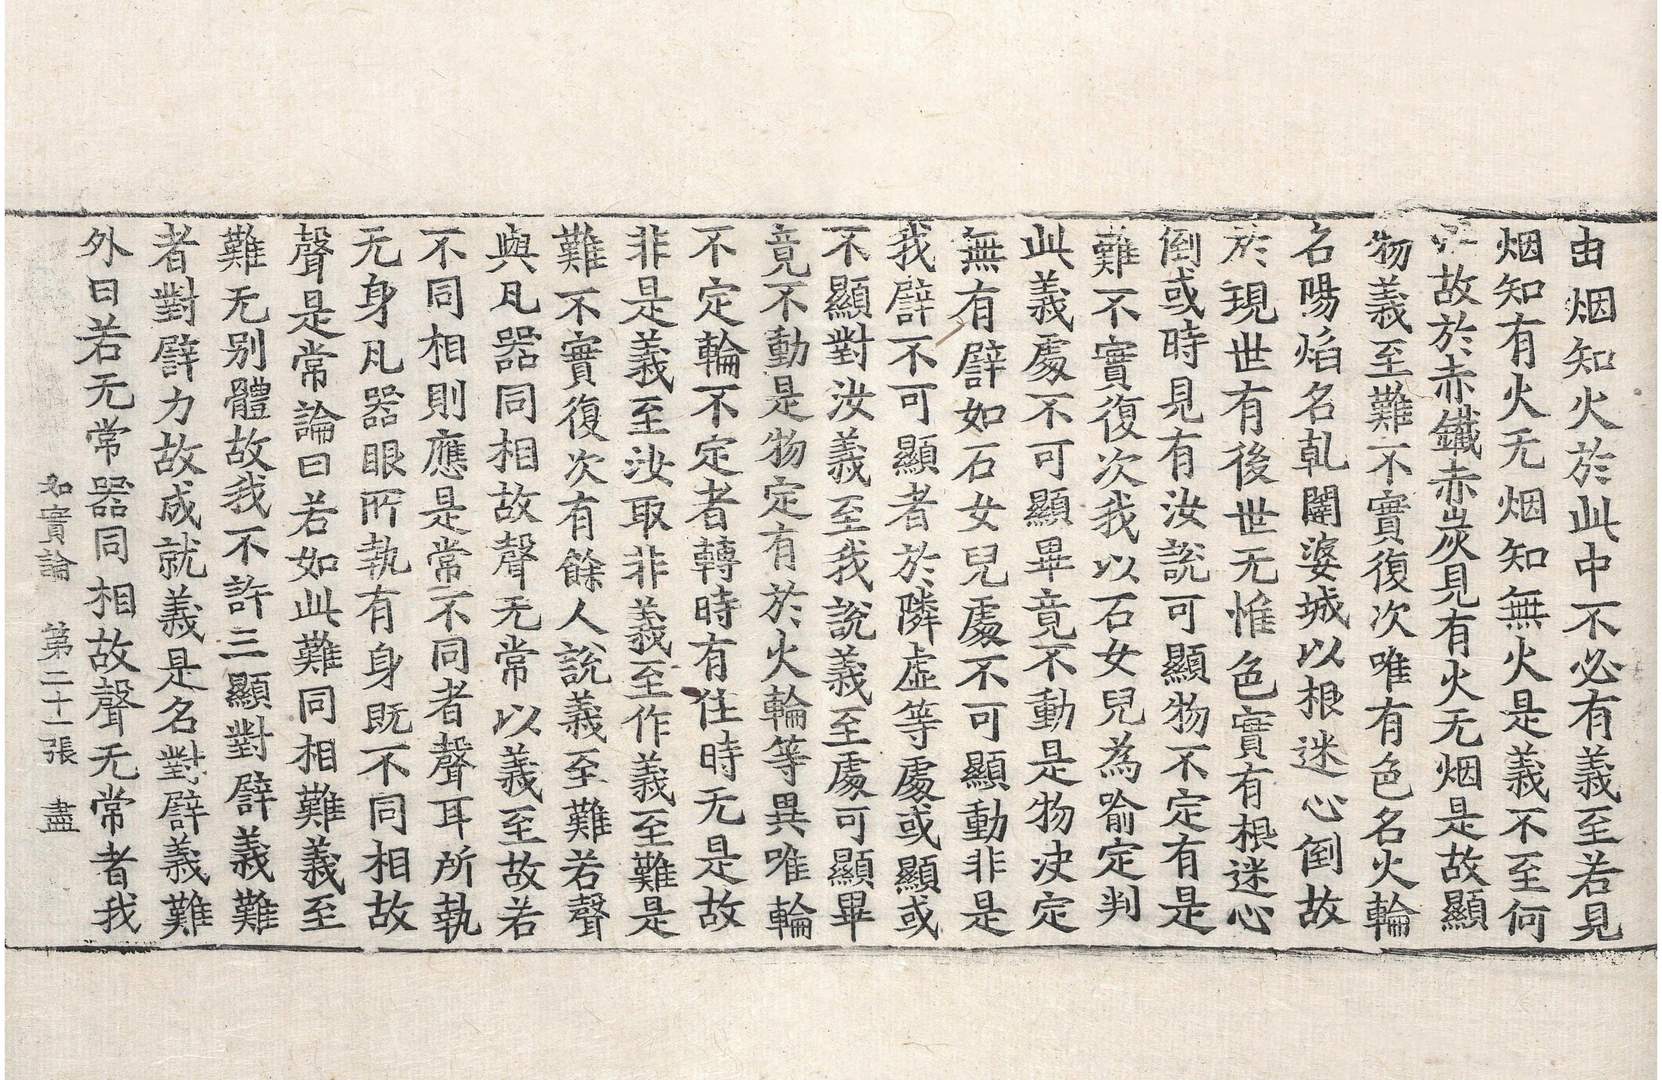 由烟知火於此中不必有義至若見
烟知有火无烟知無火是義不至何
故於赤鐵赤炭見有火无烟是故顯
物義至難不實復次唯有色名火輪
名陽焰名乹闥婆城以根迷心倒故
於現世有後世无惟色實有根迷心
倒或時見有汝說可顯物不定有是
難不實復次我以石女兒為喻定判
此義處不可顯畢竟不動是物决定
無有譬如石女兒處不可顯動非是
我譬不可顯者於隣虛等處或顯或
不顯對汝義至我說義至處可顯畢
竟不動是物定有於火輪等異唯輪
不定輪不定者轉時有住時无是故
非是義至汝取非義至作義至難是
難不實復次有餘人說義至難若聲
與凡器同相故聲无常以義至故若
不同相則應是常不同者聲耳所執
无身凡器眼所執有身既不同相故
聲是常論曰若如此難同相難義至
難无别體故我不許三顯對譬義難
者對譬力故成就義是名對譬義難
外曰若无常器同相故聲无常者我
如實論 第二十一張 盡